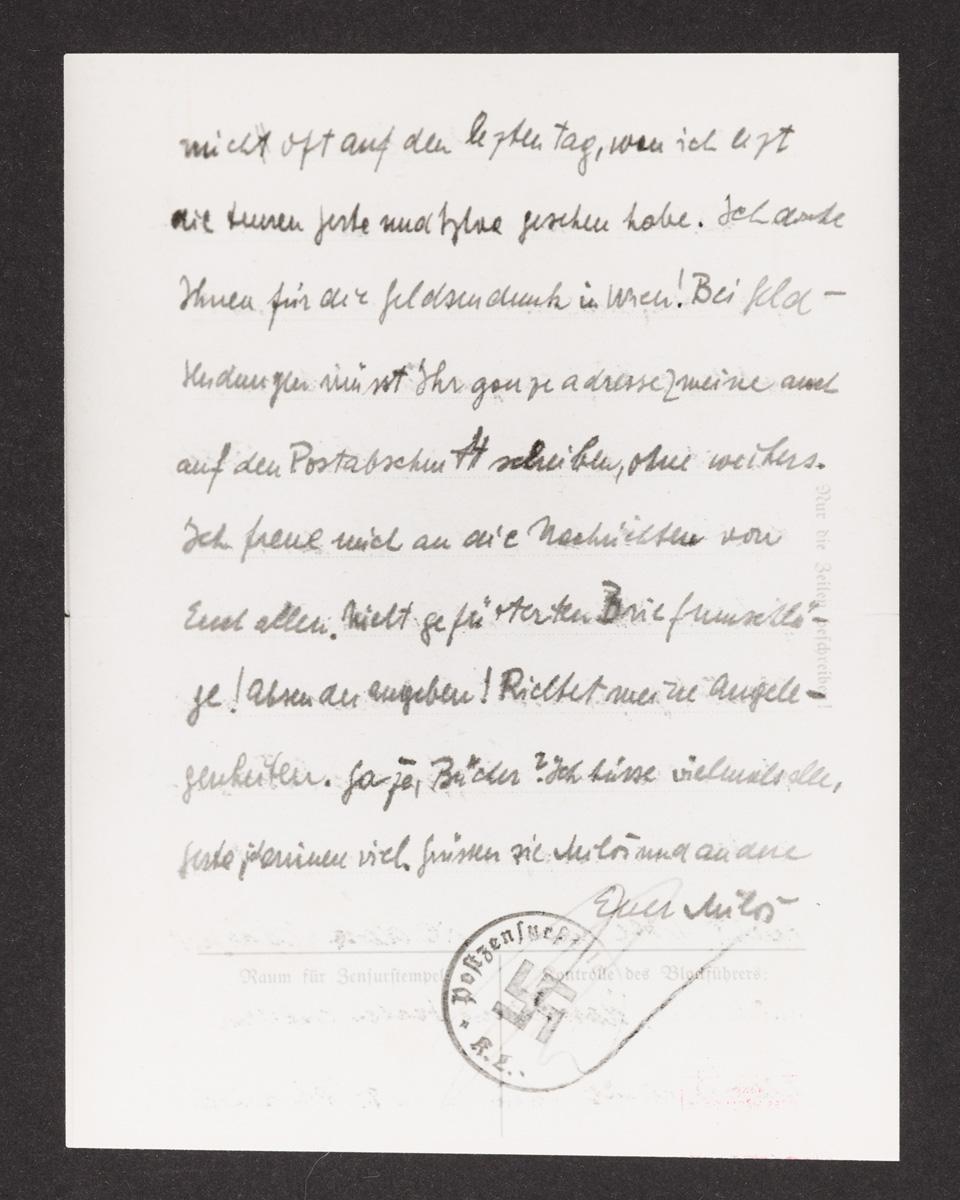 nicht oft auf den lezten Tag, wen ich lezt
die teuren geste und gesehen habe. Ich danke
Ihnen für die Geldsendunk in Wien! Bei Geld-
sendungen müsst Ihr ganze adresse meine auch
auf den Postabschnitt schreiben, ohne weiters.
Ich freue mich an die Nachrichten von
Euch allen. Nicht gefüterten Briefumschlä-
ge! Absender angeben! Richtet meine Angele-
genheiten. Ga ja, Bücher? Ich küsse vielmals alle,
viel. Grüssen sie Miloš und andere
Euer Miloš
Nur die Zeilen beschreiben!
Raum für Zensurstempel: Kontrolle des Blockführers:
Postzensurstelle
K.L.